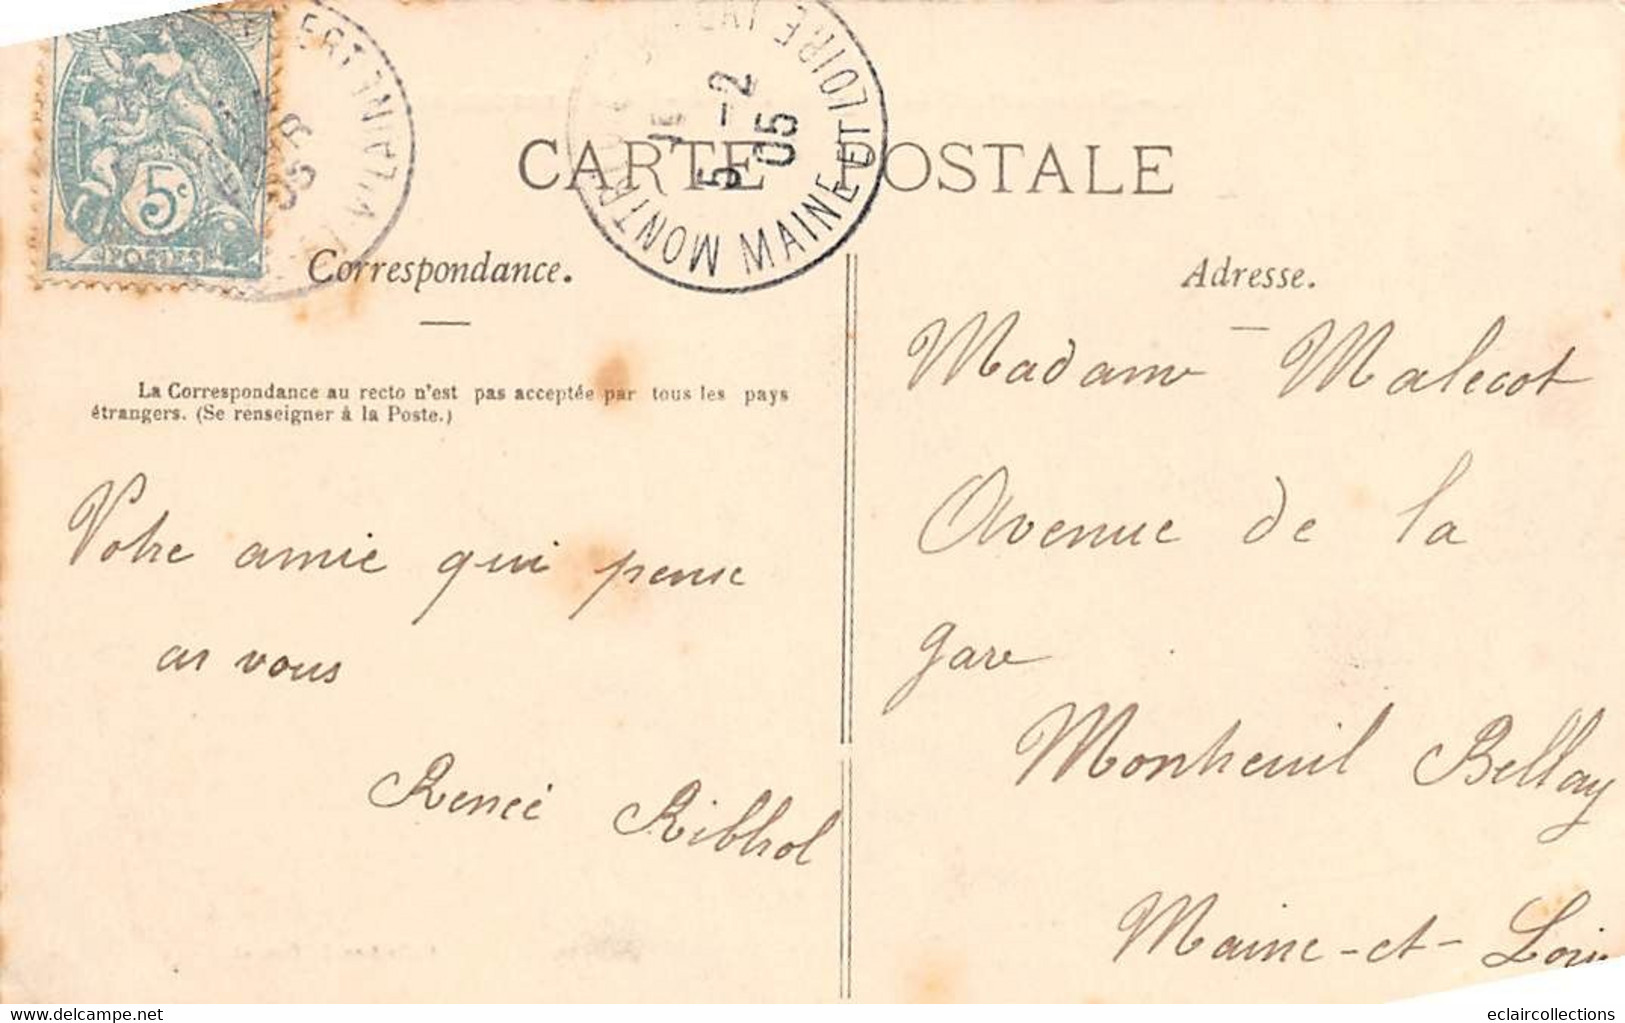 5c
POSTES
5 -2
05
MAINE ET LOIRE
CARTE POSTALE
Correspondance.
La Correspondance au recto n'est pas acceptée par tous les pays
étrangers. (Se renseigner à la Poste.)
Votre amie qui pense
as vous
Renée
Adresse.
Madame Malecot
Avenue de la
gare
Montreuil Bellay
Maine-et-Loire
eclaircollections